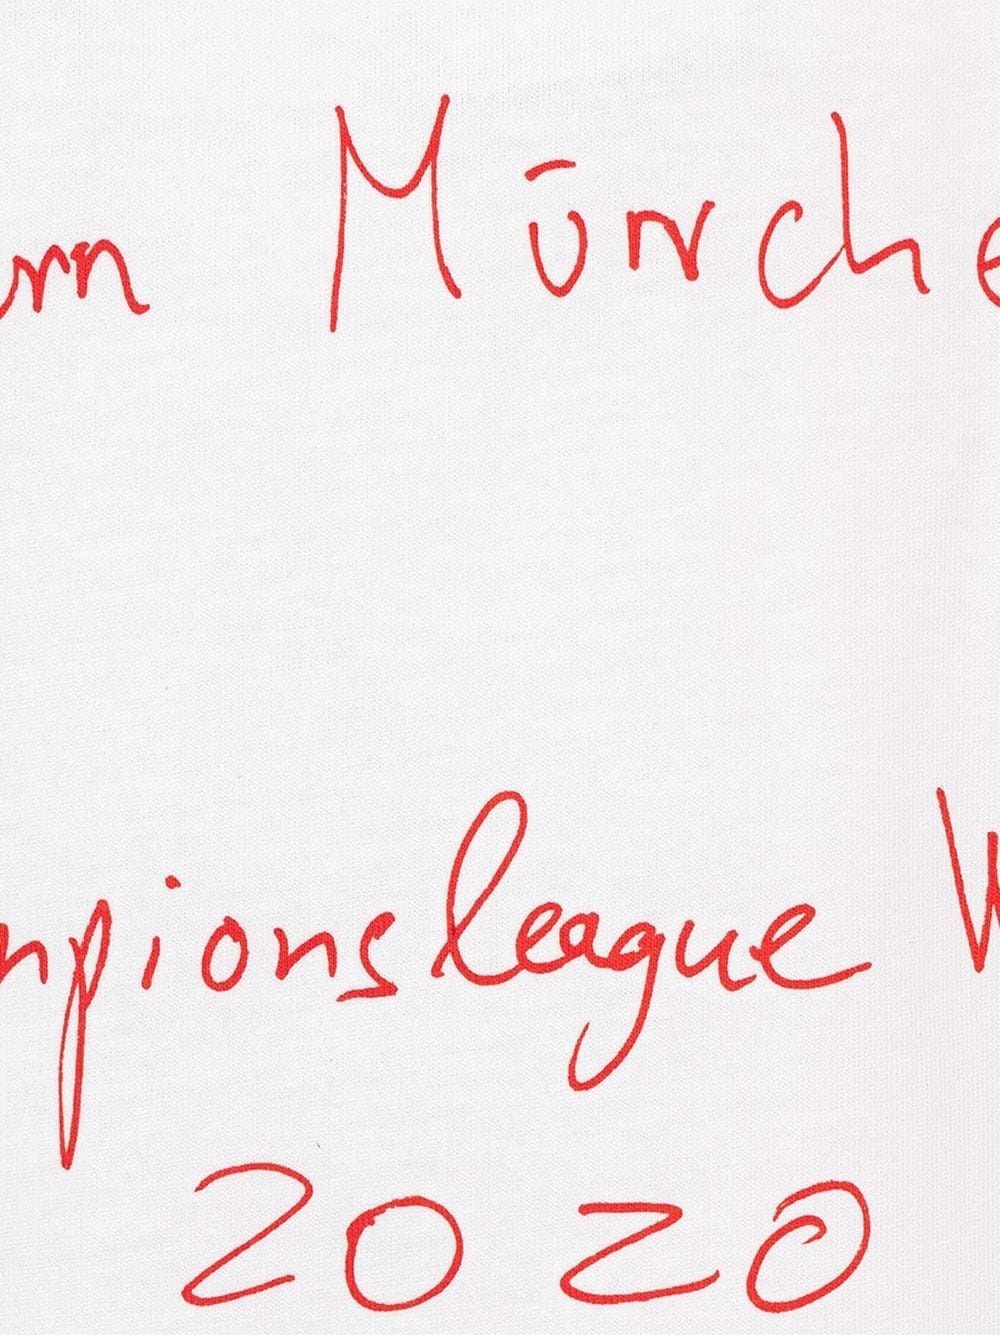 rn Münche
mpionsleague W
2020